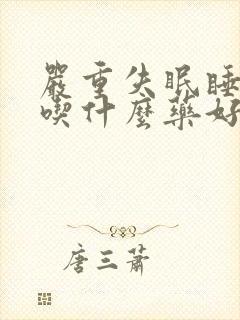 嚴重失眠睡
喫什麼藥好
唐三蕭